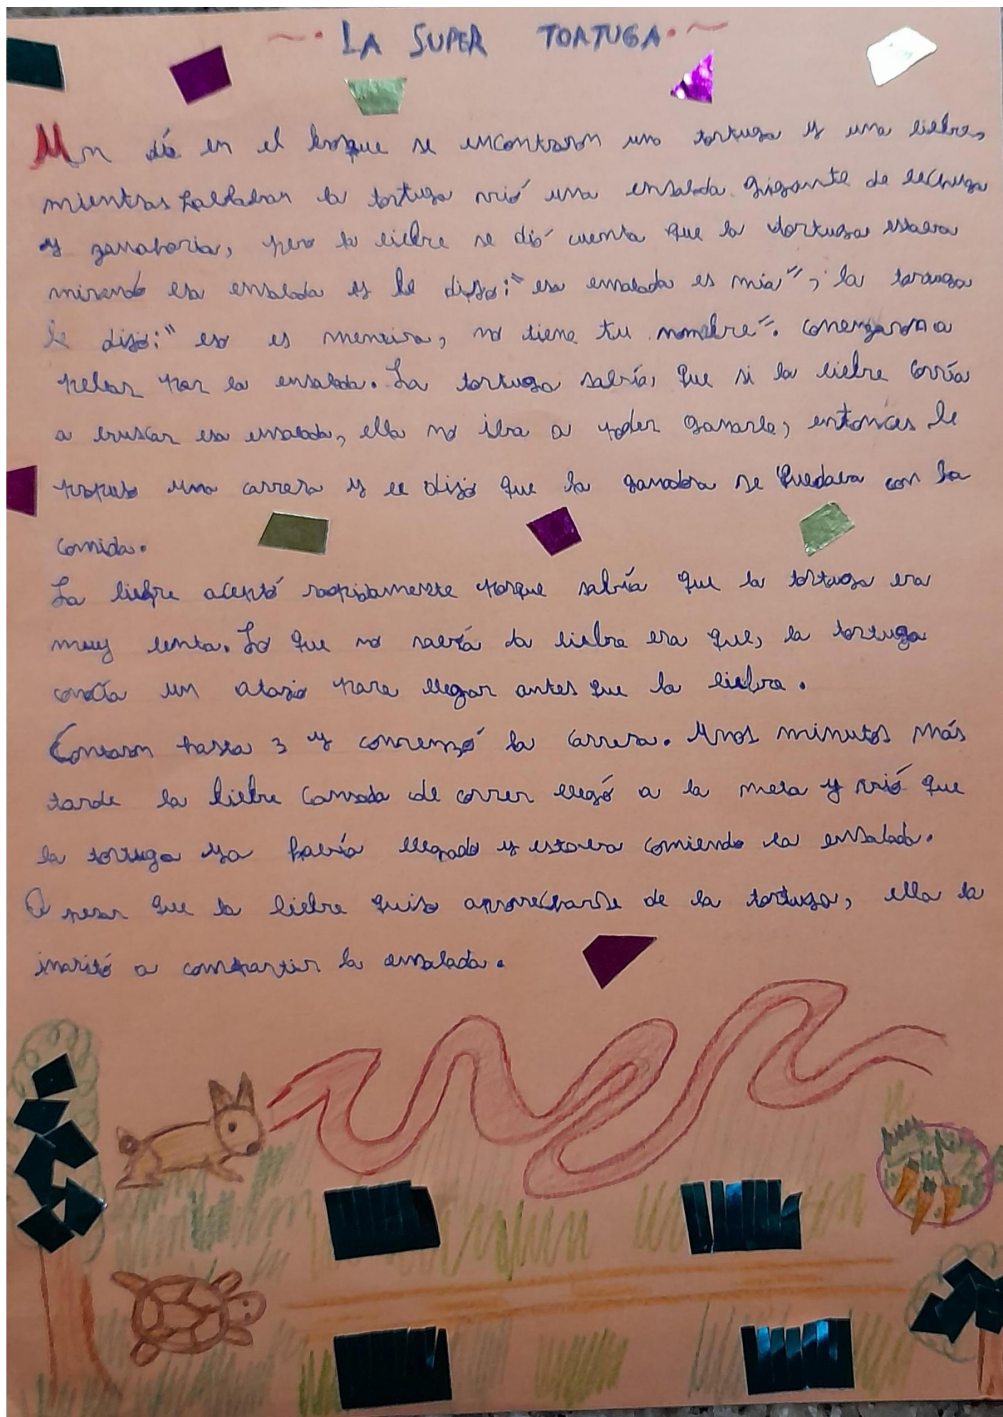 LA SUPER TORTUGA
Un día en el bosque se encontraron una tortuga y una liebre,
mientras hablaban la tortuga vió una ensalada gigante de lechuga
y zanahoria, pero la liebre se dió cuenta que la tortuga estava
mirando esa ensalada y le dijo: "esa ensalada es mía", la tortuga
le dijo: "eso es mentira, no tiene tu nombre". comenzaron a
pelear por la ensalada. La tortuga sabía, que si la liebre corría
a buscar esa ensalada, ella no iba a poder ganarle, entonces le
propuso una carrera y le dijo que la ganadora se quedava con la
comida.
La liebre aceptó rapidamente porque sabía que la tortuga era
muy lenta. Lo que no sabía la liebre era que, la tortuga
conocía un atajo para llegar antes que la liebre.
Contaron hasta 3 y comenzó la carrera. Unos minutos más
tarde la liebre cansada de correr llegó a la meta y vió que
la tortuga ya había llegado y estava comiendo la ensalada.
A pesar que la liebre quiso aprovecharse de la tortuga, ella la
invitó a compartir la ensalada.